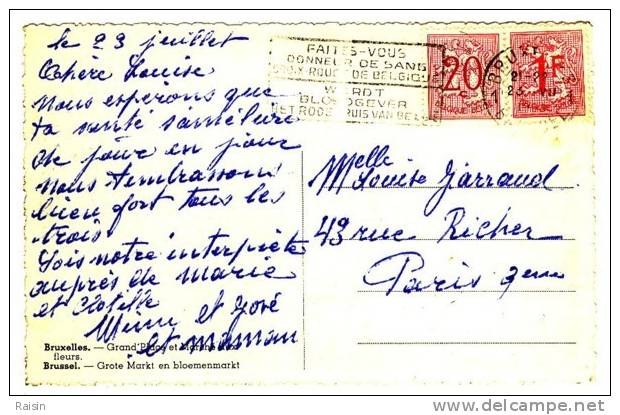 le 23 juillet
Chère Louise
nous espérons que
ta santé s'améliore
de jour en jour
nous t'embrassons
bien fort tous les
trois
Sois notre interprète
auprès de marie
et Clotille
Mimi et José
et maman
FAITES-VOUS
DONNEUR DE SANG
CROIX-ROUGE DE BELGIQUE
WORDT
BLOEDGEVER
HET RODE KRUIS VAN BELG
20
1F
Melle
Louise Jarraud
43 rue Richer
Paris 9eme
Bruxelles. — Grand'Place et Marché aux
fleurs.
Brussel. — Grote Markt en bloemenmarkt
Raisin
delcampe.net